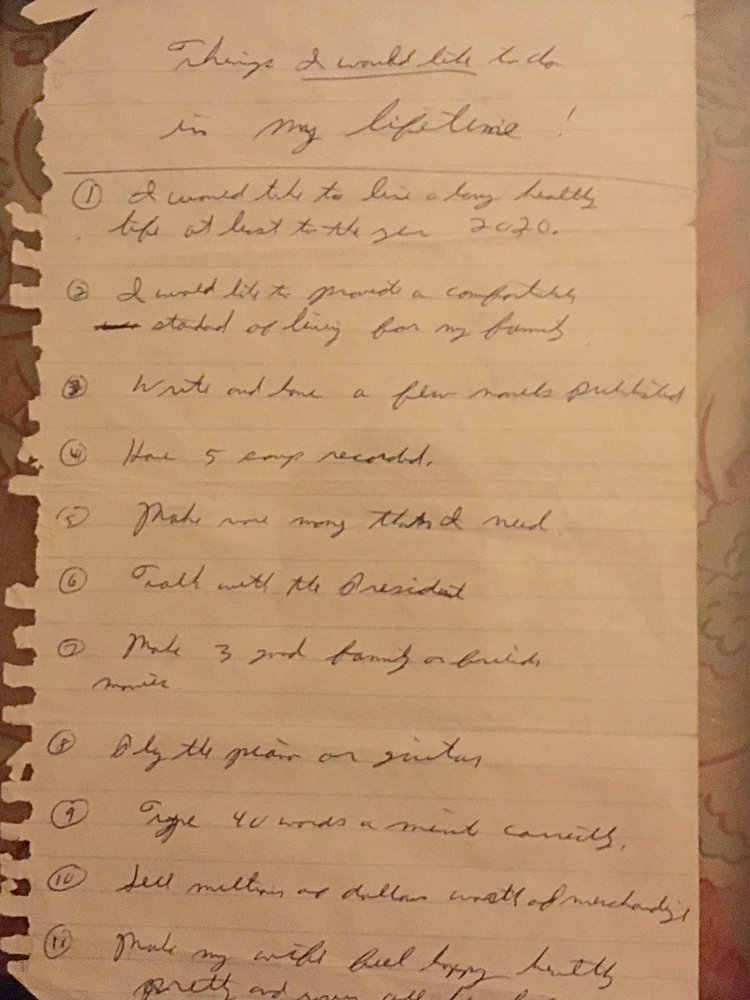 Things I would like to do
in my lifetime!
① I would like to live a long healthy
life at least to the year 2020.
② I would like to provide a comfortable
standard of living for my family
③ Write and have a few novels published
④ Have 5 songs recorded.
⑤ Make more money than I need.
⑥ Talk with the President
⑦ Make 3 good family or
movies
⑧ Play the piano or guitar
⑨ Type 40 words a minute correctly.
⑩ Sell millions of dollars worth of merchandize
⑪ Make my wife feel happy healthy
pretty and